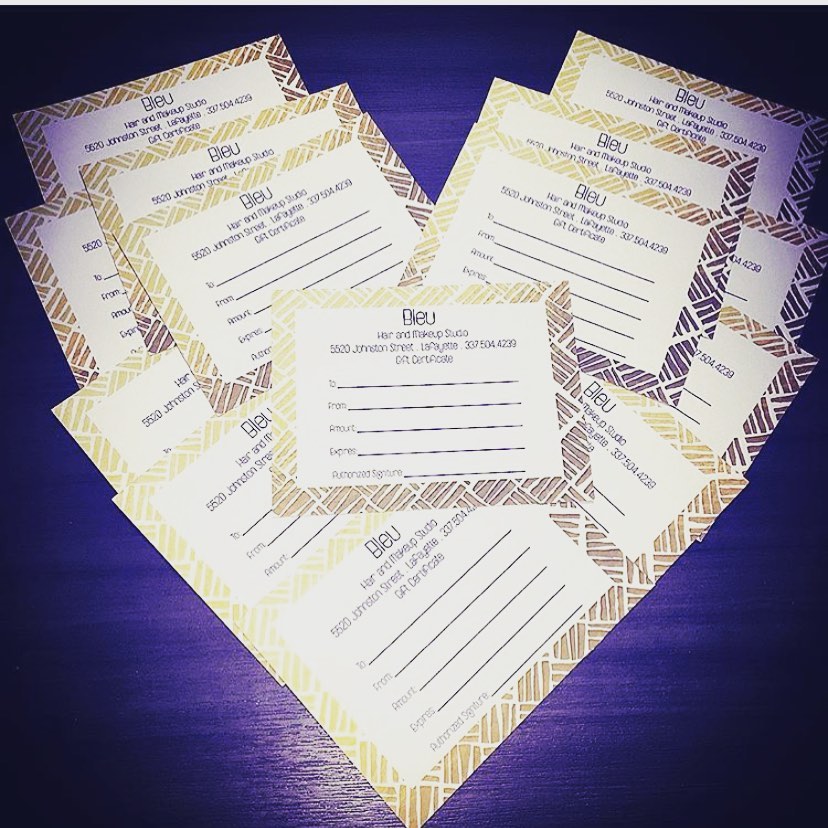 Bleu
Hair and Makeup Studio
5520 Johnston Street . Lafayette . 337.504.4239
Gift Certificate
Bleu
Hair and Makeup Studio
5520 Johnston Street . Lafayette
Bleu
Hair and Makeup Studio
5520 Johnston Street . Lafayette . 337.504.4239
Gift Certificate
To
From
Amount
Expires
Autho
5520
To
From
Amount
Expire
Bleu
Hair and Makeup Studio
5520 Johnston Street . Lafayette . 337.504.4239
Gift Certificate
Bleu
Hair and Makeup Studio
5520 Johnston Street . Lafayette . 337.504.4239
Bleu
Hair and Makeup Studio
5520 Johnston Street . Lafayette . 337.504.4239
Gift Certificate
To
From
Amount
Expires
.4239
337.504.4239
Bleu
Hair and Makeup Studio
5520 Johnston Street . Lafayette . 337.504.4239
Gift Certificate
To
From
Amount
Expires
Authorized Signture
Ha
5520 Johnston S
B
Hair and
5520 Johnston Street
To
From
Amount
Bleu
Makeup Studio
Lafayette . 337.504.4239
Bleu
Hair and Makeup Studio
5520 Johnston Street . Lafayette . 337.504.4
Gift Certificate
To
From
Amount
Expires
Authorized Signture